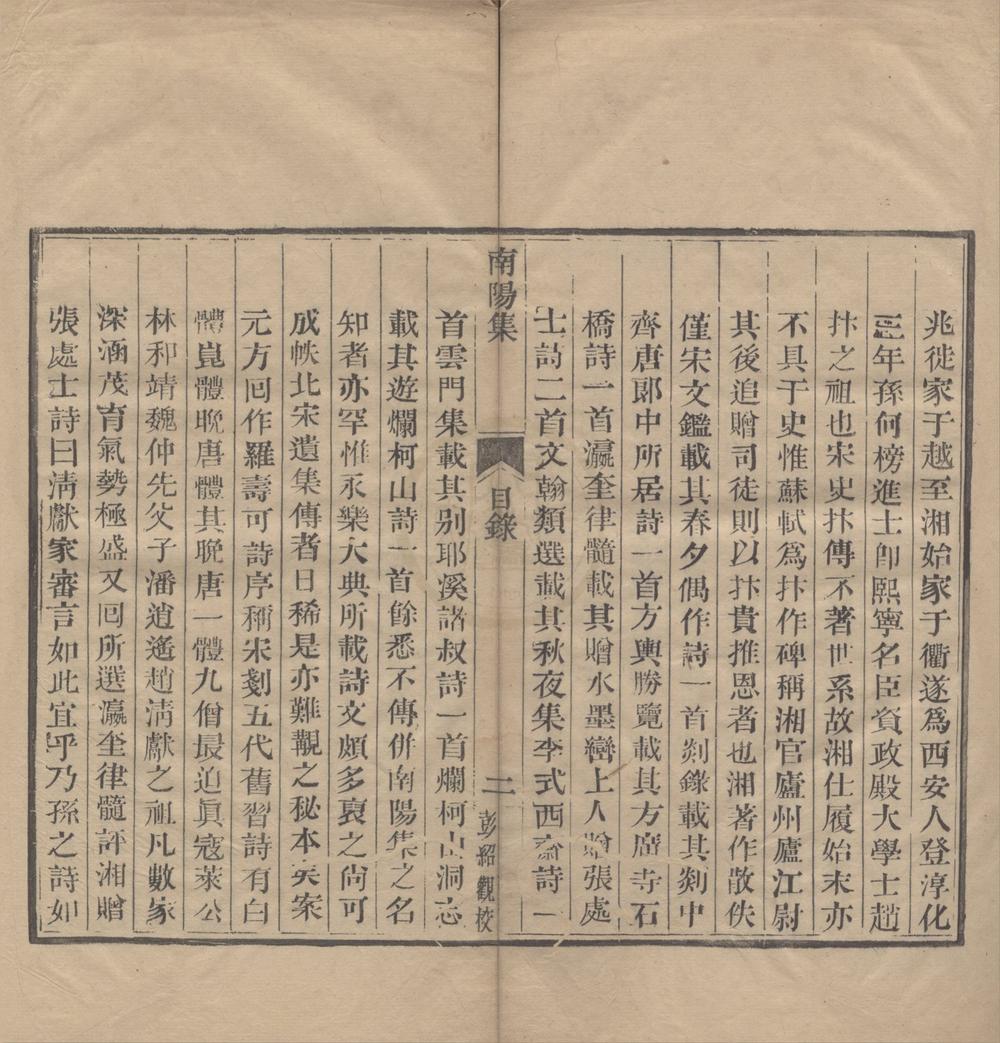 兆徙家于越至湘始家于衢遂爲西安人登淳化
三年孫何榜進士卽熙寧名臣資政殿大學士趙
抃之祖也宋史抃傳不著世系故湘仕履始末亦
不具于史惟蘇軾爲抃作碑稱湘官廬州廬江尉
其後追贈司徒則以抃貴推恩者也湘著作散佚
僅宋文鑑載其春夕偶作詩一首剡錄載其剡中
齊唐郞中所居詩一首方輿勝覽載其方廣寺石
橋詩一首瀛奎律髓載其贈水墨巒上人贈張處
士詩二首文翰類選載其秋夜集李式西齋詩一
南陽集
目錄
二
彭紹觀校
首雲門集載其别耶溪諸叔詩一首爛柯山洞志
載其遊爛柯山詩一首餘悉不傳併南陽集之名
知者亦罕惟永樂大典所載詩文頗多裒之尙可
成帙北宋遺集傳者日稀是亦難觀之秘本矣案
元方囘作羅壽可詩序稱宋剗五代舊習詩有白
體崑體晚唐體其晚唐一體九僧最迫眞寇萊公
林和靖魏仲先父子潘逍遙趙淸獻之祖凡數家
深涵茂育氣勢極盛又囘所選瀛奎律髓評湘贈
張處士詩曰淸獻家審言如此宜乎乃孫之詩如